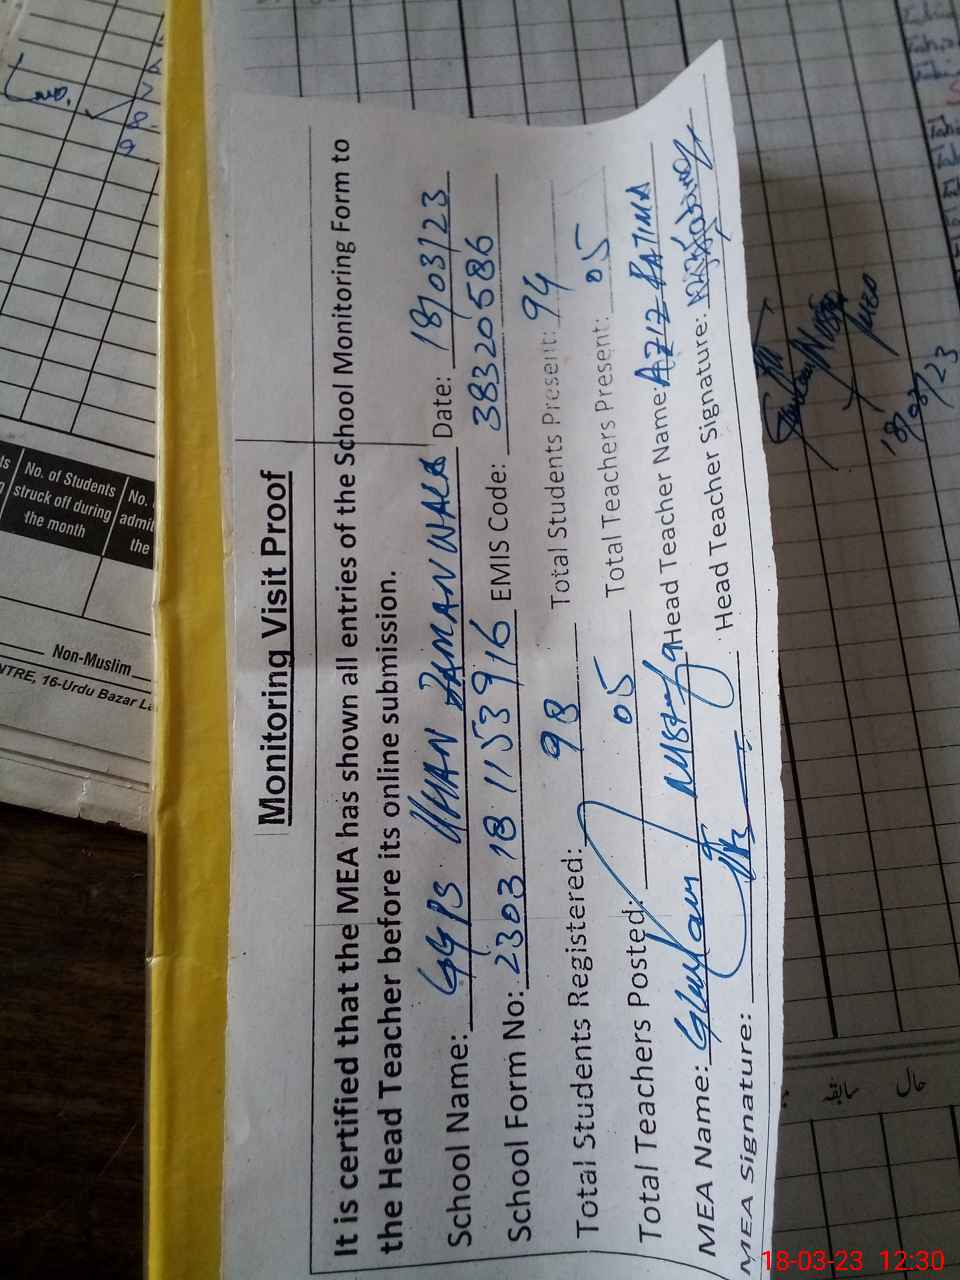 Monitoring Visit Proof
It is certified that the MEA has shown all entries of the School Monitoring Form to
the Head Teacher before its online submission.
School Name: GGPS UMAN DAMANWALA Date: 18/03/23
School Form No: 2303 18 1153916 EMIS Code: 38320586
Total Students Registered: 98 Total Students Present: 94
Total Teachers Posted: 05 Total Teachers Present: 05
MEA Name: Ghulam Mustafa Head Teacher Name: AZIZ FATIMA
MEA Signature: Head Teacher Signature:
No. of Students
struck off during
the month
No.
the
Non-Muslim
NTRE, 16-Urdu Bazar La
7
8
9
18/03/23
حال
سابقہ
18-03-23 12:30